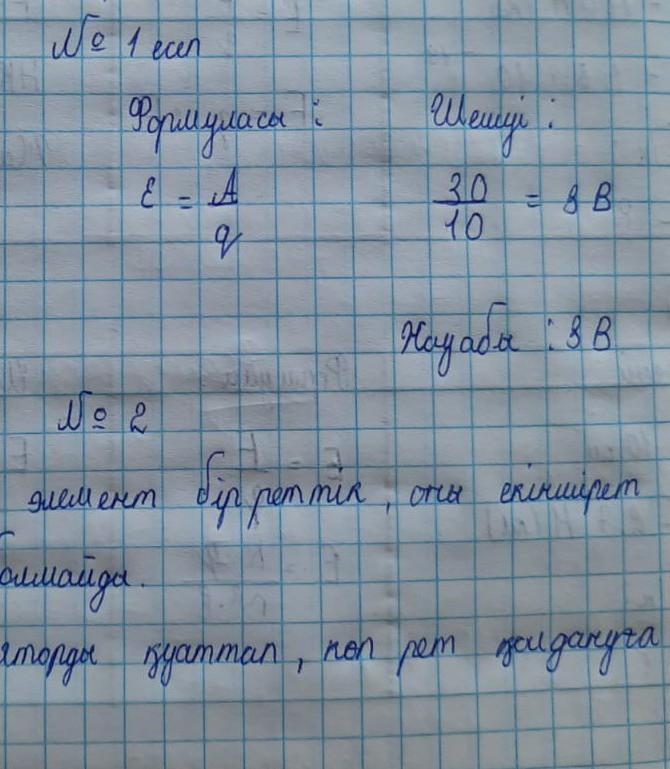 № 1 есеп
Формуласы : Шешуі :
ε = A/q 30/10 = 3 В
Жауабы : 3 В
№ 2
элемент бір реттік, оны екінші рет
болмайды.
яторды қуаттап, көп рет қолдануға